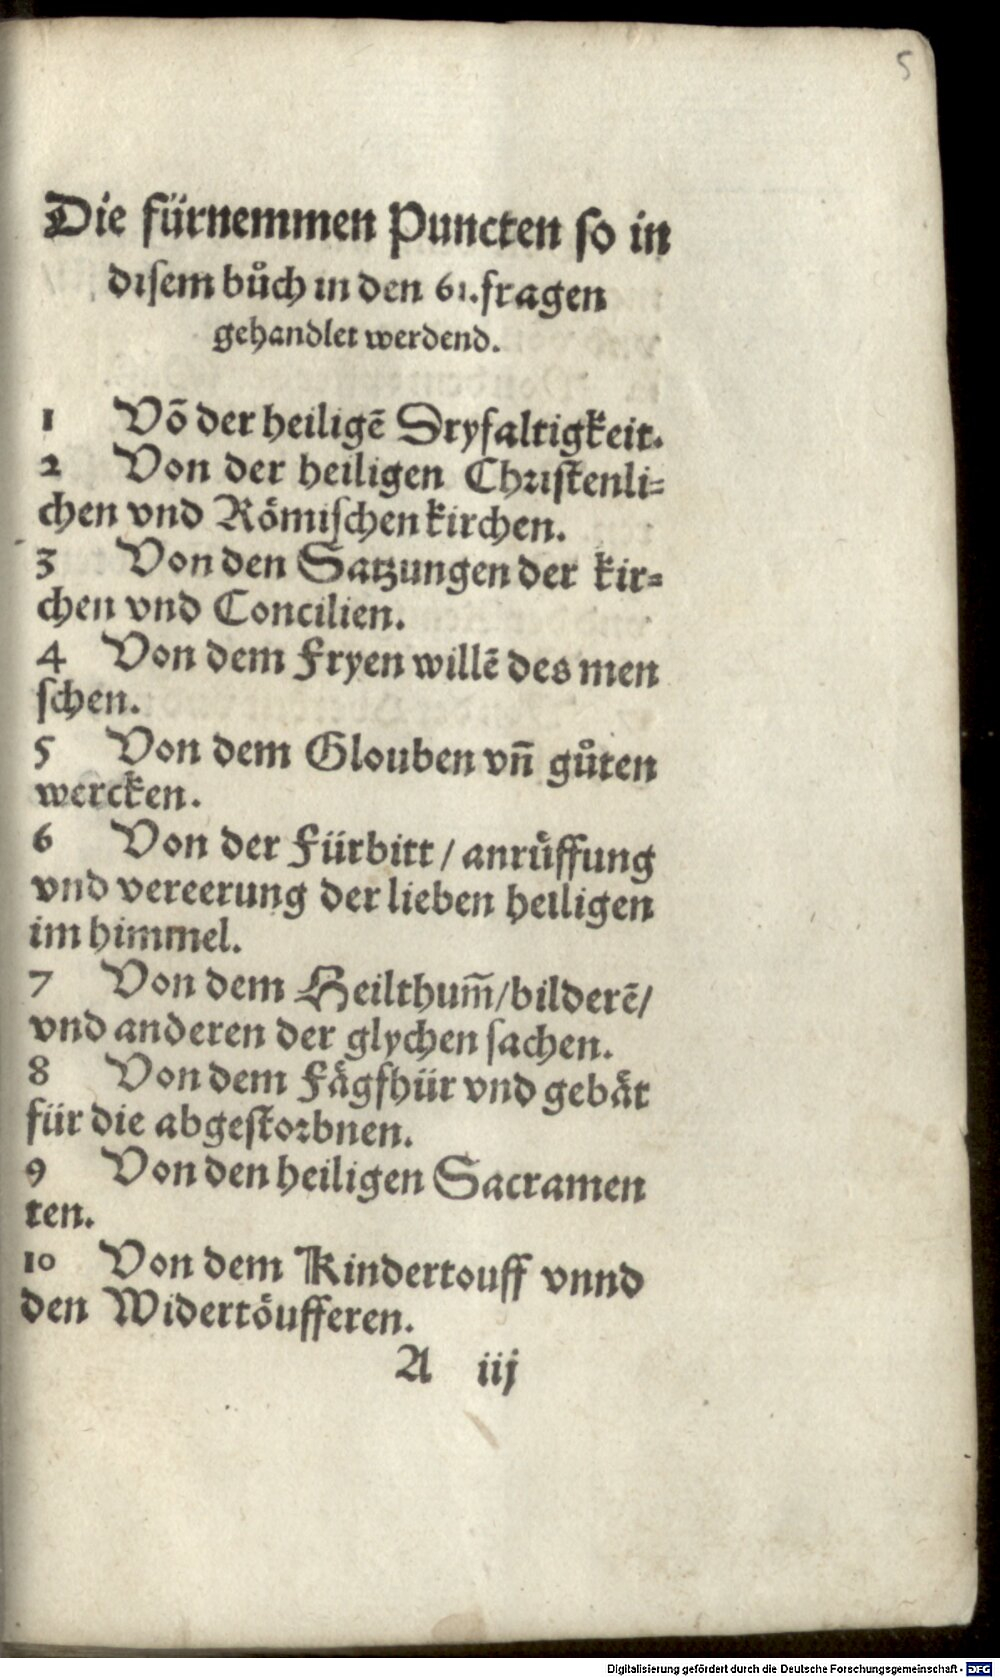 5
Die fürnemmen Puncten so in
disem bůch in den 61. fragen
gehandlet werdend.
1 Võ der heiligẽ Dryfaltigkeit.
2 Von der heiligen Christenli=
chen vnd Römischen kirchen.
3 Von den Satzungen der kir=
chen vnd Concilien.
4 Von dem Fryen willẽ des men
schen.
5 Von dem Glouben vñ gůten
wercken.
6 Von der Fürbitt / anrůffung
vnd vereerung der lieben heiligen
im himmel.
7 Von dem Heilthum̃/bilderẽ/
vnd anderen der glychen sachen.
8 Von dem Fägfhür vnd gebät
für die abgestorbnen.
9 Von den heiligen Sacramen
ten.
10 Von dem Kindertouff vnnd
den Widertöufferen.
A iij
Digitalisierung gefördert durch die Deutsche Forschungsgemeinschaft - DFG